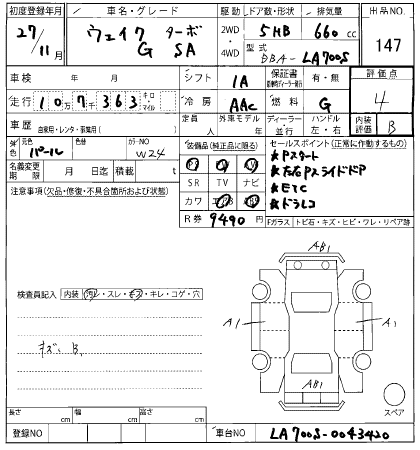 初度登録年月 車名・グレード 駆動 ドア数・形状 排気量 出品NO.
27/11月 ウェイク ターボ G SA 2WD・4WD 5HB 660cc 147
型式 DBA-LA700S
車検 年 月 シフト IA 保証書 有・無 評価点
走行 10万7千363キロ・マイル 冷房 AAC 燃料 G 4
車歴 自家用・レンタ・事業用( ) 定員 人 外車モデル 年 ディーラー・並行 ハンドル 左・右 内装評価 B
外色 元色 パール 色替 カラーNO W24
装備品(純正品に限る) セールスポイント(正常に作動するもの)
名義変更期限 月 日迄 積載 t
PS PW
SR TV ナビ
カワ
R券 9490円
★Pスタート
★左右Pスライドドア
★ETC
★ドラレコ
注意事項(欠品・修復・不具合箇所および状態)
Fガラス トビ石・キズ・ヒビ・ワレ・リペア跡
AB1
検査員記入 内装 汚レ・スレ・キズ・キレ・コゲ・穴
A1 A1
キズ B.
AB1
スペア
長さ cm 幅 cm 高さ cm
登録NO 車台NO LA700S-0043420